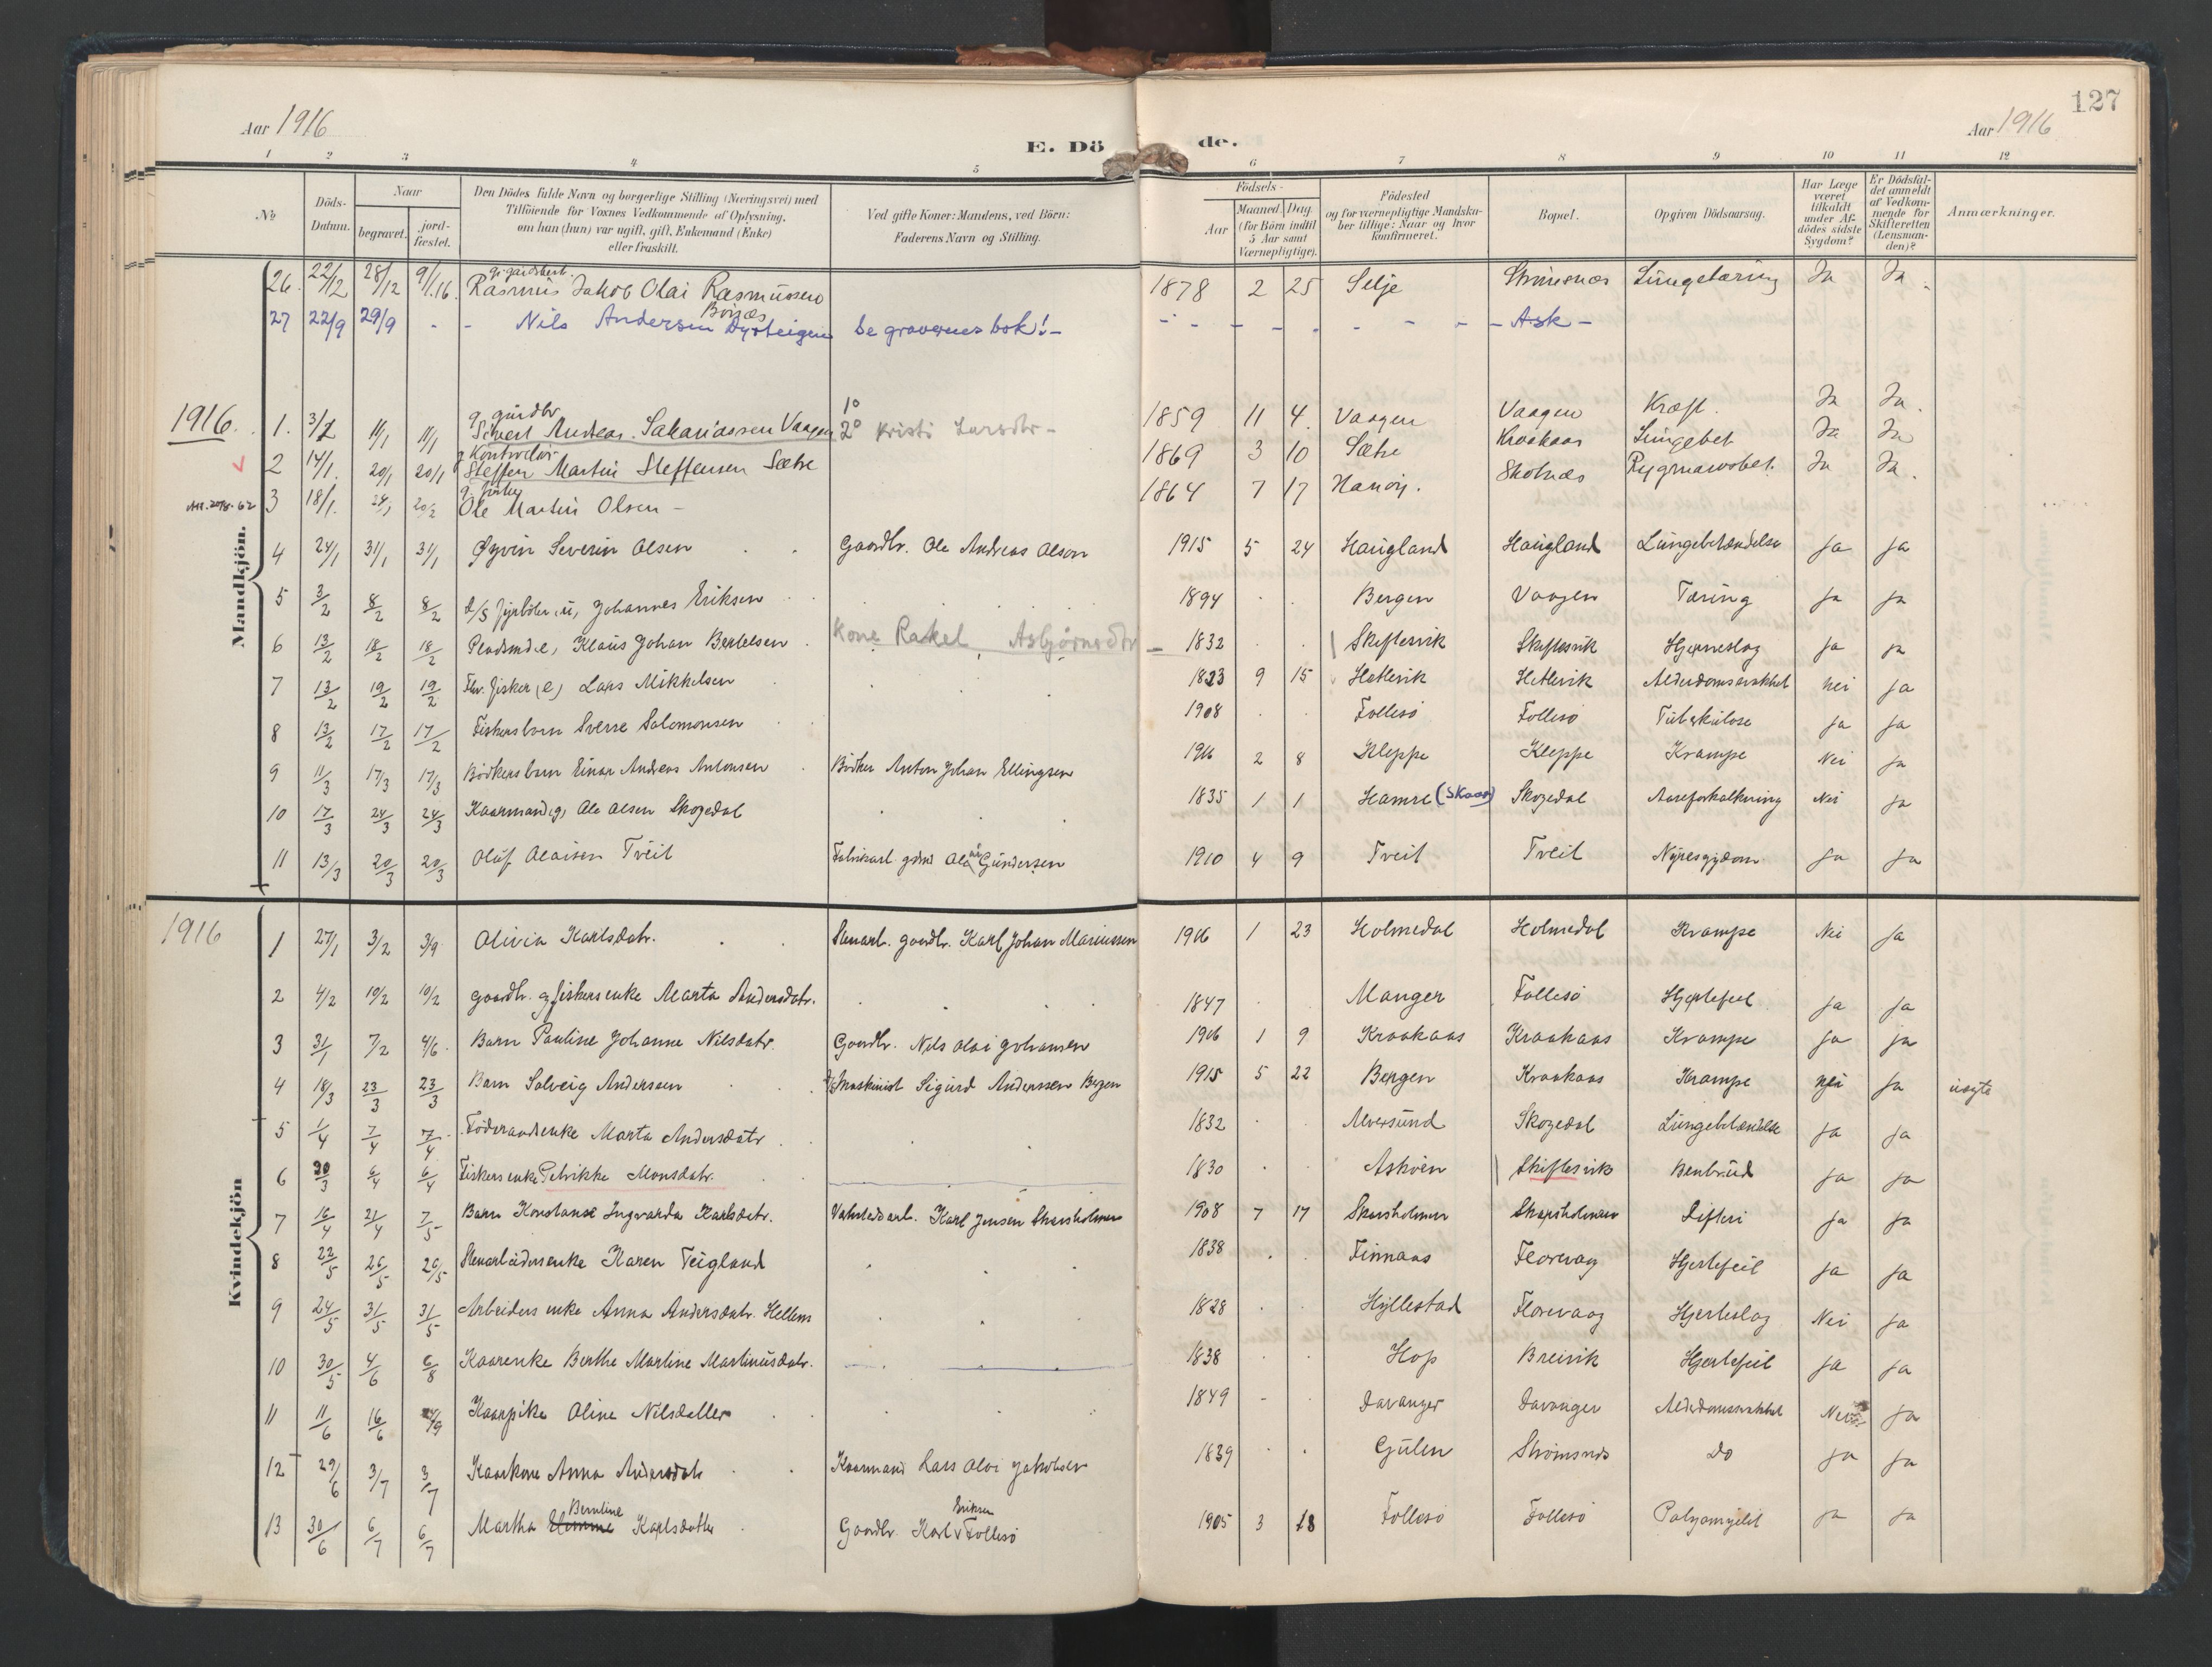 127
Aar 1916
E. Dö de.
Aar 1916
1 2 3 4 5 6 7 8 9 10 11 12
№
Döds-Datum.
Naar
begravet.
jord-fæstet.
Den Dödes fulde Navn og borgerlige Stilling (Næringsvei) med
Tilföiende for Voxnes Vedkommende af Oplysning,
om han (hun) var ugift, gift, Enkemand (Enke)
eller fraskilt.
Ved gifte Koner: Mandens, ved Börn:
Faderens Navn og Stilling.
Födsels-
Aar
Maaned. Dag.
(for Börn indtil
5 Aar samt
Værnepligtige).
Födested
og for værnepligtige Mandska-
ber tillige: Naar og hvor
konfirmeret.
Bopæl.
Opgiven Dödsaarsag.
Har Læge
været
tilkaldt
under Af-
dödes sidste
Sygdom?
Er Dödsfal-
det anmeldt
af Vedkom-
mende for
Skifteretten
(Lensman-
den)?
Anmærkninger.
Mandkjön.
26. 22/12 28/12 9/1.16. Rasmus Jakob Olai Rasmussen 1878 2 25 Selje Lungetæring Ja Ja
27 22/9 29/9 - - Nils Andersen Dyrteigen Se graverens bok! - Ask -
1916.
1. 11/1 11/1 g. gårdbr Sivert Andreas Sakariassen Vaagen 1° 2° Kristi Larsdtr - 1859 11 4. Vaagen Vaagen Kræft. Ja Ja.
2 14/1. 20/1 20/1 Steffen Martin Steffensen Sætre 1869 3 10 Sætre Kraakaas Ja Ja
3 18/1. Ole Martin Olsen - 1864 7 17 Ja Ja.
4 24/1 31/1 31/1 Øyvin Severin Olsen Gaardbr. Ole Andreas Olson 1915 5 24 Haugland Haugland Lungebetændelse ja ja
5 3/2 8/2 8/2 Johannes Eriksen 1894 Bergen Vaagen Tæring ja ja
6 13/2 18/2 18/2 Klaus Johan Bertelsen Kone Rakel Asbjørnsdtr - 1832 Skiftesvik Skiftesvik Hjerneslag ja ja
7 13/2 19/2 19/2 Fhv. fisker (e) Lars Mikkelsen 1823 9 15 Hetlevik Hetlevik Alderdomssvakhet nei ja
8 13/2 17/2 17/2 Fiskersbarn Sverre Salomonsen 1908 Follesö Follesö Tuberkulose ja ja
9 11/3 17/3 17/3 Bödkersbarn Einar Andreas Antonsen Bödker Anton Johan Ellingsen 1916 2 8 Kleppe Kleppe Krampe Nei ja
10 17/3 24/3 24/3 Kaarmand (g) Ole Olsen Skogedal 1835 1 1 Hamre (Skaar) Skogedal Aareforkalkning Nei ja
11 13/3 20/3 20/3 Oluf Olaisen Tveit Fabrikarb. gdmd Olai Gundersen 1910 4 9 Tveit Tveit Nyresygdom ja ja
Kvindekjön
1916
1 27/1 3/2 3/9 Olivia Karlsdatr. Stenarb. gaardbr. Karl Johan Mariussen 1916 1 23 Holmedal Holmedal Krampe Nei ja
2 4/2 10/2 10/2 gaardbr. og fiskersenke Marta Andersdatr. 1847 Manger Follesö Hjertefeil ja ja
3 31/1 7/2 4/6. Barn Pauline Johanne Nilsdatr. Gaardbr. Nils Olai Johansen 1916 1 9 Kraakaas Kraakaas Krampe ja ja
4 18/3 23/3 23/3 Barn Solveig Anderssen Maskinist Sigurd Anderssen Bergen 1915 5 22 Bergen Kraakaas Krampe nei ja uegte
5 1/4 7/4 7/4 Föderaadsenke Marta Andersdatr 1832 Alversund Skogedal Lungebetændelse ja ja
6 30/3 6/4 6/4 Fiskersenke Petrikke Monsdatr. 1830 Asköen Skiftesvik Benbrud ja ja
7 16/4 21/4 7/5 Barn Konstanse Ingvarda Karlsdatr. Karl Jensen Skarsholmen 1908 7 17 Skarsholmen Skarsholmen Difteri ja ja
8 22/5 26/5 26/5 Stenarbeidersenke Karen Teigland 1838 Finnaas Florvaag Hjertefeil ja ja
9 24/5 31/5 31/5 Arbeidersenke Anna Andersdatr. Hellem 1828 Hyllestad Florevaag Hjerteslag Nei ja
10 30/5 4/6 6/8 Kaarenke Berthe Martine Martinusdatr. 1838 Hop Breivik Hjertefeil ja ja
11 11/6 16/6 Kaarpike Oline Nilsdatter 1849 Davanger Davanger Alderdomssvakhet Nei ja
12 29/6 3/7 3/7 Kaarkone Anna Andersdatr Kaarmand Lars Olai Jakobsen 1839 Gulen Strömsnes Do ja ja
13 30/6 6/7 6/7 Martha Berntine Karlsdatter Gaardbr. Karl Eriksen Follesö 1905 3 18 Follesö Follesö Polyomyelit ja ja